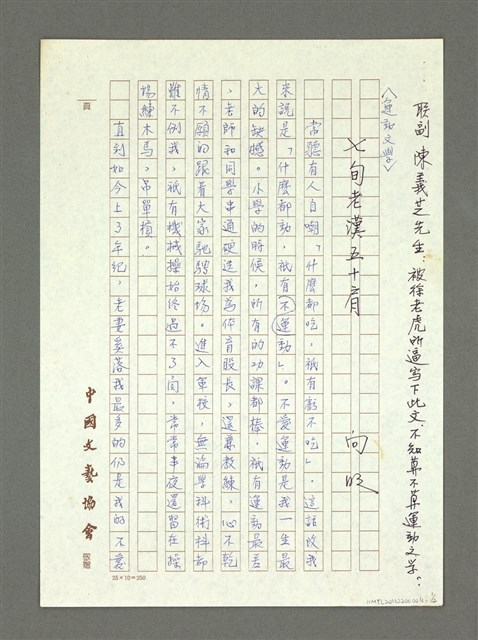 聯副 陳義芝先生：被徐老虎所逼寫下此文，不知算不算運動文學？
〈運動文學〉
七旬老漢五十肩
向明
常聽有人自嘲，「什麼都吃，祇有虧不吃」。這話改我
來說是「什麼都動，祇有不運動」。不愛運動是我一生最
大的缺憾。小學的時候，所有的功課都棒，祇有運動最差
，老師和同學串通硬选我為体育股長，還兼教練，心不乾
情不願的跟着大家馳騁球場。進入軍校，無論學科術科都
難不倒我，祇有機械操始終過不了関，常常半夜還留在操
場練木馬，吊單槓。
直到如今上了年紀，老妻奚落我最多的仍是我的不愛
頁
中國文藝協會
25×10=250